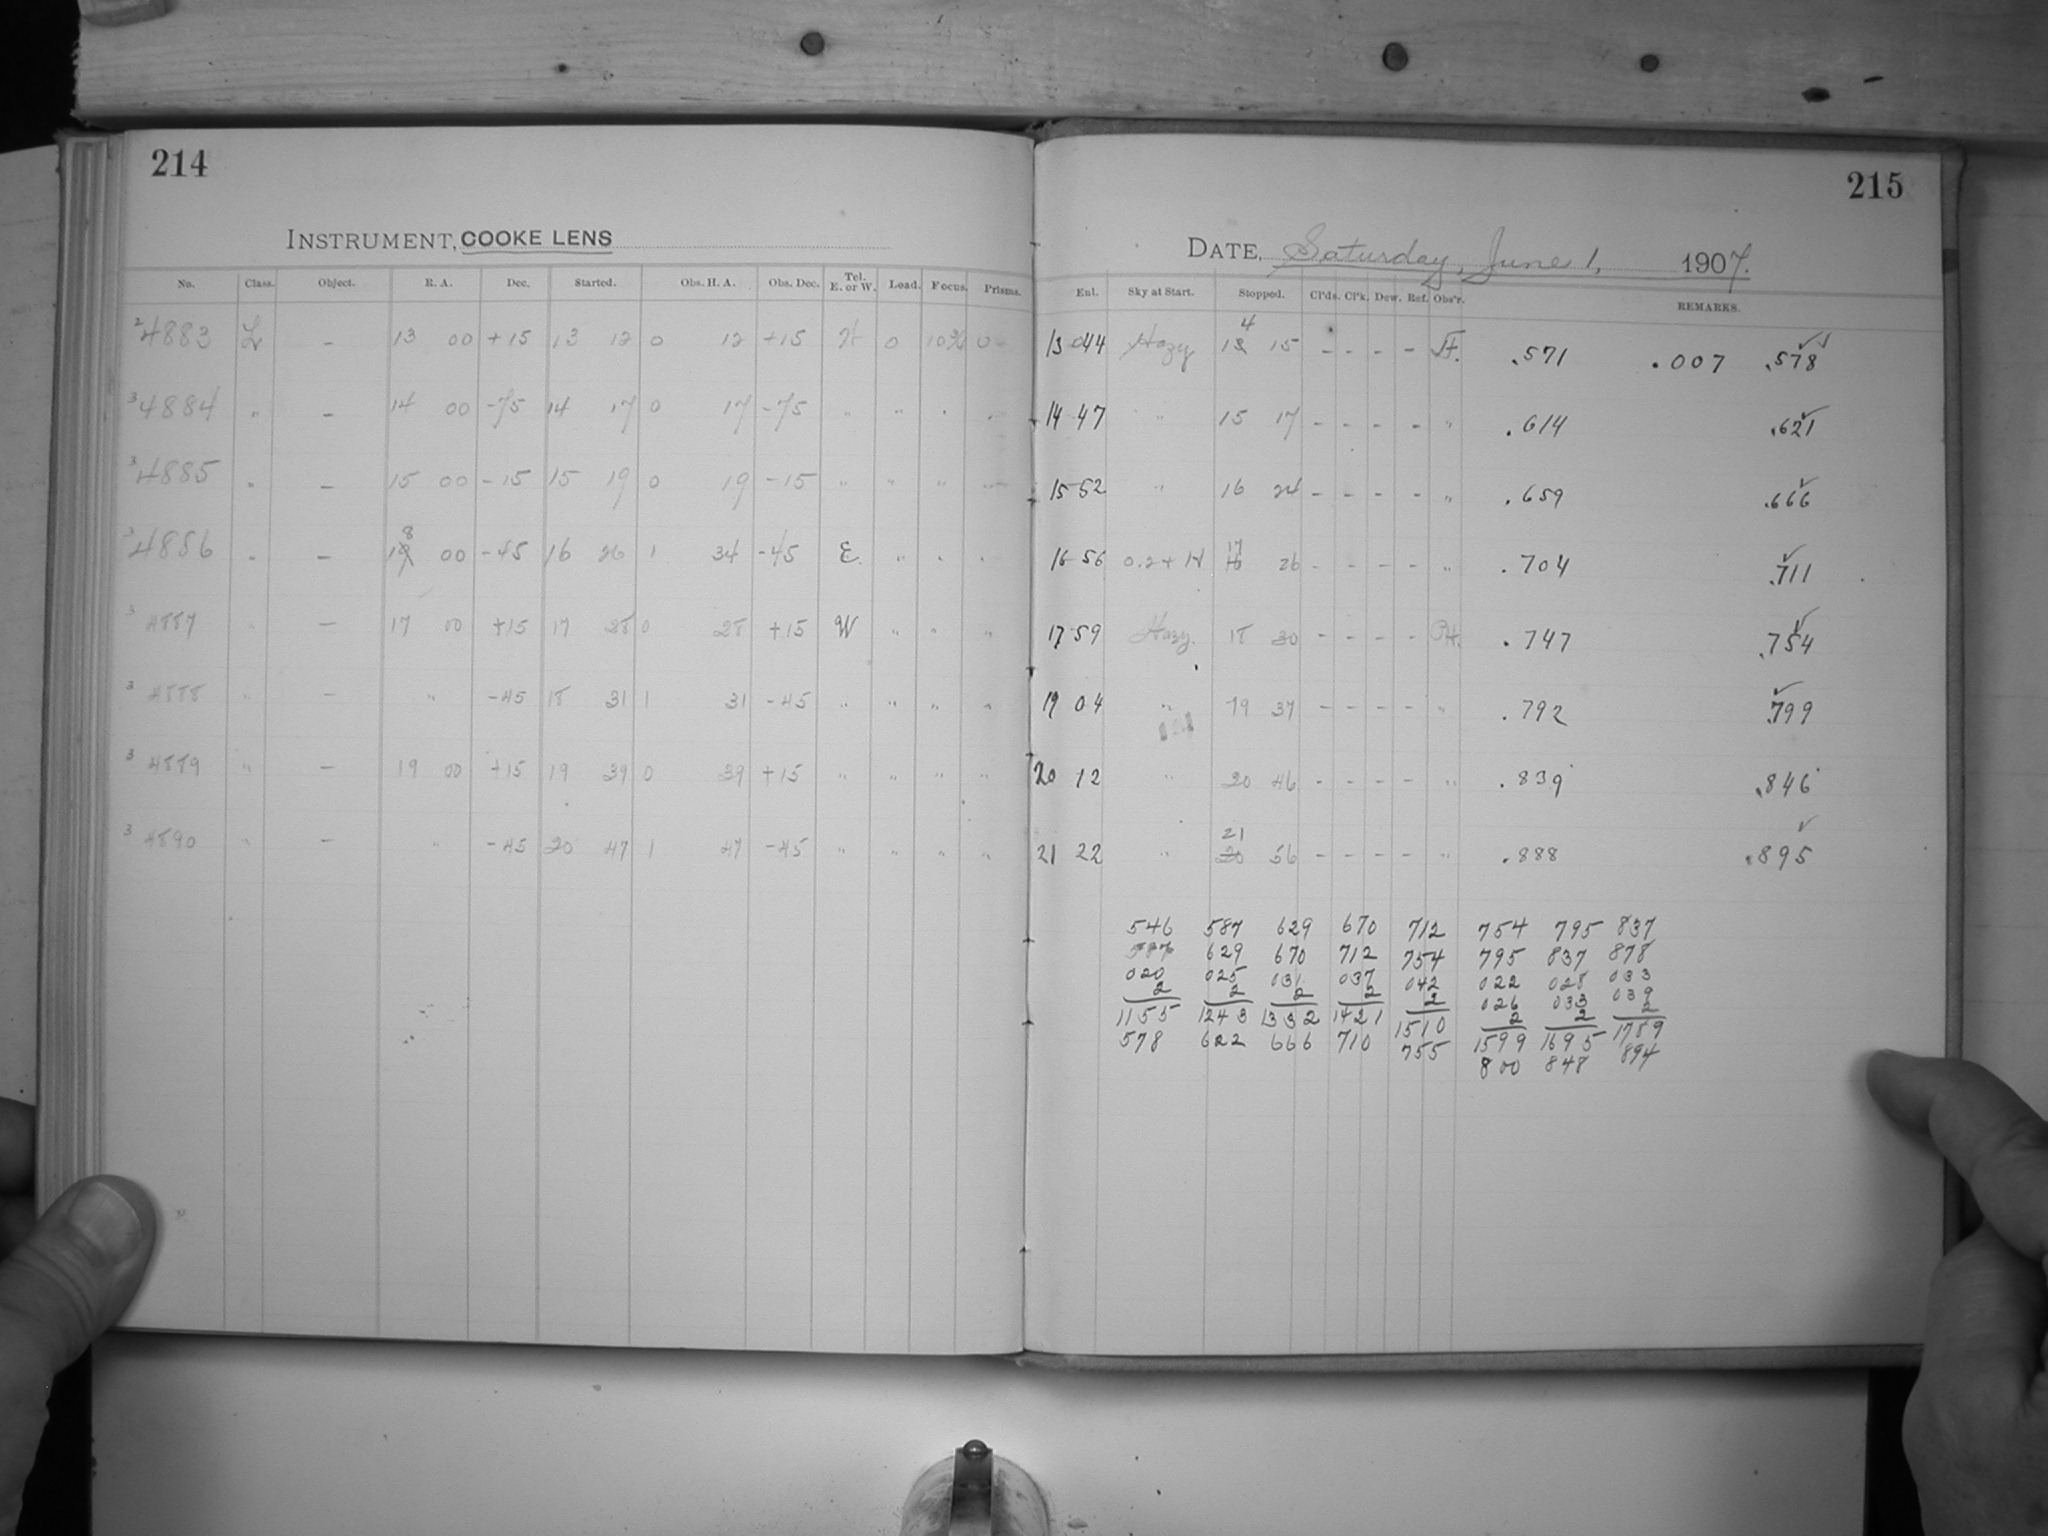 214
INSTRUMENT, COOKE LENS
No. Class. Object. R. A. Dec. Started. Obs. H. A. Obs. Dec. Tel. E. or W. Load. Focus. Prisms.
2 4883 L - 13 00 +15 13 12 0 12 +15 0
3 4884 " - 14 00 -75 14 17 0 17 -75 " " " "
3 4885 " - 15 00 -15 15 19 0 19 -15 " " " "
3 4886 " - 18 00 -45 16 26 1 34 -45 E. " " "
3 4887 " - 17 00 +15 17 28 0 28 +15 W " " "
3 4888 " - " -45 18 31 1 31 -45 " " " "
3 4889 " - 19 00 +15 19 39 0 39 +15 " " " "
3 4890 " - " -45 20 47 1 47 -45 " " " "
215
DATE, Saturday, June 1, 1907.
Ent. Sky at Start. Stopped. Cl'ds. Cl'k. Dew. Ref. Obs'r. REMARKS.
13 44 Hazy 14 15 - - - - .571 .007 .578 ✓
14 47 " 15 17 - - - - " .614 .621 ✓
15 52 " 16 24 - - - - " .659 .666 ✓
16 56 0.2 + H 17 26 - - - - " .704 .711 ✓
17 59 Hazy. 18 30 - - - - .747 .754 ✓
19 04 " 19 37 - - - - " .792 .799 ✓
20 12 " 20 46 - - - - " .839 .846
21 22 " 21 56 - - - - " .888 .895 ✓
546 587 629 670 712 754 795 837
629 670 712 754 795 837 878
020 025 031 037 042 022 028 033
2 2 2 2 2 026 033 039
1155 1243 1332 1421 1510 2 2 2
578 622 666 710 755 1599 1695 1759
800 848 894